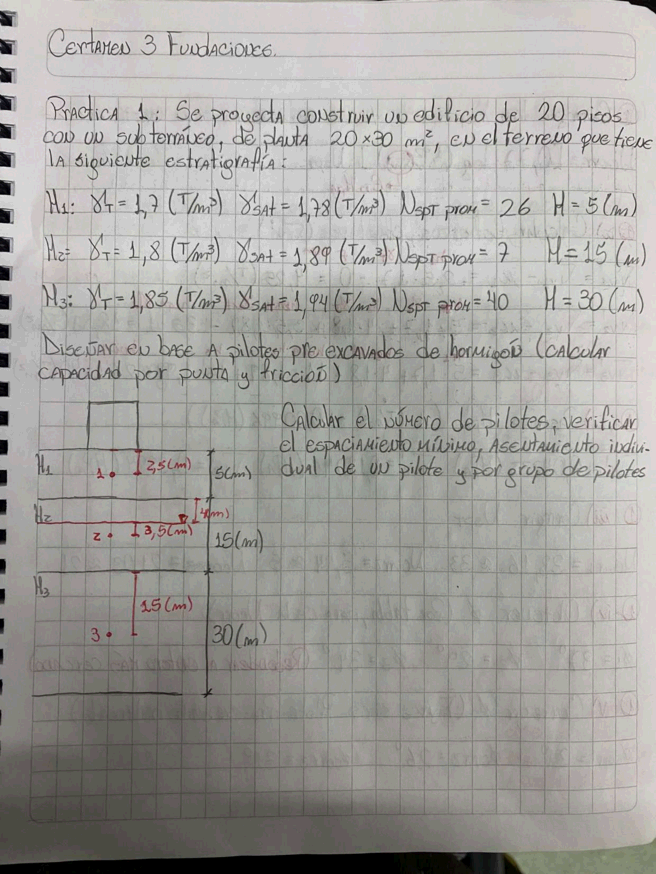 Certamen 3 Fundaciones.
Practica 1: Se proyecta construir un edificio de 20 pisos
con un subterráneo, de planta 20x30 m², en el terreno que tiene
la siguiente estratigrafía:
H1: γT = 1,7 (T/m³) γSAt = 1,78 (T/m³) NSPT prom = 26 H = 5 (m)
H2= γT = 1,8 (T/m³) γSAt = 1,89 (T/m³) NSPT prom = 7 H = 15 (m)
H3: γT = 1,85 (T/m³) γSAt = 1,94 (T/m³) NSPT prom = 40 H = 30 (m)
Diseñar en base a pilotes pre excavados de hormigón (calcular
capacidad por punta y fricción)
Calcular el número de pilotes, verificar
el espaciamiento mínimo, asentamiento indivi-
dual de un pilote y por grupo de pilotes
H1
1
2,5(m)
5(m)
H2
4(m)
2
3,5(m)
15(m)
H3
15(m)
3
30(m)